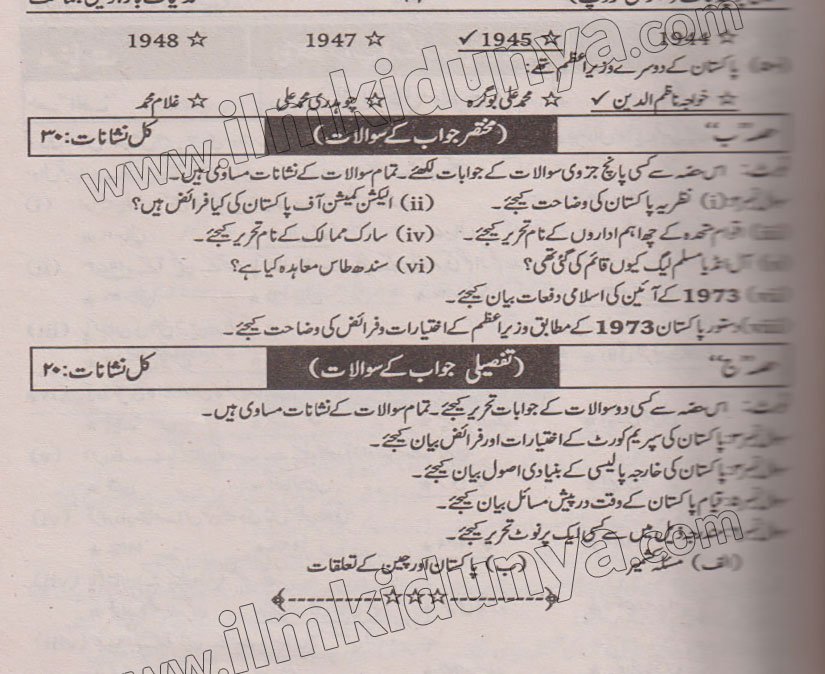 ☆ 1944 ☆ 1945 ✓ ☆ 1947 ☆ 1948
پاکستان کے دوسرے وزیر اعظم تھے:
☆ خواجہ ناظم الدین ✓ ☆ محمد علی بوگرہ ☆ چوہدری محمد علی ☆ غلام محمد
حصہ "ب" (مختصر جواب کے سوالات) کل نشانات: ۳۰
نوٹ: اس حصہ سے کسی پانچ جزوی سوالات کے جوابات لکھئے۔ تمام سوالات کے نشانات مساوی ہیں۔
سوال نمبر ۲: (i) نظریہ پاکستان کی وضاحت کیجئے۔ (ii) الیکشن کمیشن آف پاکستان کی کیا فرائض ہیں؟
(iii) اقوام متحدہ کے چھ اہم اداروں کے نام تحریر کیجئے۔ (iv) سارک ممالک کے نام تحریر کیجئے۔
(v) آل انڈیا مسلم لیگ کیوں قائم کی گئی تھی؟ (vi) سندھ طاس معاہدہ کیا ہے؟
(vii) 1973 کے آئین کی اسلامی دفعات بیان کیجئے۔
(viii) دستور پاکستان 1973 کے مطابق وزیر اعظم کے اختیارات و فرائض کی وضاحت کیجئے۔
حصہ "ج" (تفصیلی جواب کے سوالات) کل نشانات: ۲۰
نوٹ: اس حصہ سے کسی دو سوالات کے جوابات تحریر کیجئے۔ تمام سوالات کے نشانات مساوی ہیں۔
سوال نمبر ۳: پاکستان کی سپریم کورٹ کے اختیارات اور فرائض بیان کیجئے۔
سوال نمبر ۴: پاکستان کی خارجہ پالیسی کے بنیادی اصول بیان کیجئے۔
سوال نمبر ۵: قیام پاکستان کے وقت درپیش مسائل بیان کیجئے۔
سوال نمبر ۶: مندرجہ ذیل میں سے کسی ایک پر نوٹ تحریر کیجئے۔
(الف) مسئلہ کشمیر (ب) پاکستان اور چین کے تعلقات
☆☆☆
www.ilmkidunya.com
www.ilmkidunya.com